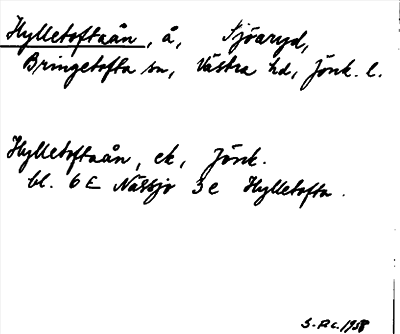 Hylletoftaån, å, Sjöaryd,
Bringetofta sn, Västra hd, Jönk. l.
Hylletoftaån, ek, Jönk.
bl. 6 E Nässjö 3 e Hylletofta.
1958